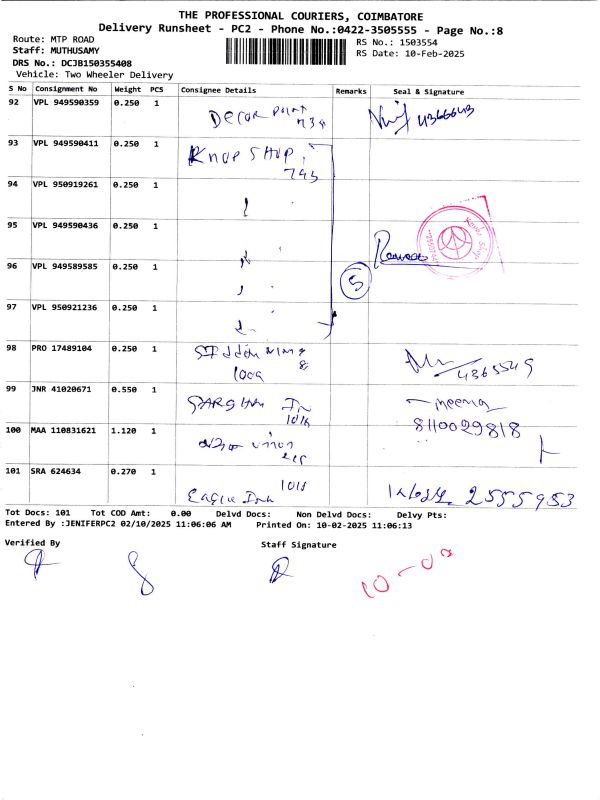 THE PROFESSIONAL COURIERS, COIMBATORE
Delivery Runsheet - PC2 - Phone No.:0422-3505555 - Page No.:8
Route: MTP ROAD
RS No.: 1503554
Staff: MUTHUSAMY
RS Date: 10-Feb-2025
DRS No.: DCJB150355408
Vehicle: Two Wheeler Delivery
S No Consignment No Weight PCS Consignee Details Remarks Seal & Signature
92 VPL 949590359 0.250 1 Decor Point 434 4366643
93 VPL 949590411 0.250 1 Knop SHOP, 743
94 VPL 950919261 0.250 1
95 VPL 949590436 0.250 1
96 VPL 949589585 0.250 1 5
97 VPL 950921236 0.250 1
98 PRO 17489104 0.250 1 1009
99 JNR 41020671 0.550 1 meena
100 MAA 110831621 1.120 1 8110029818
101 SRA 624634 0.270 1 Eagle 1018 2555953
Tot Docs: 101 Tot COD Amt: 0.00 Delvd Docs: Non Delvd Docs: Delvy Pts:
Entered By :JENIFERPC2 02/10/2025 11:06:06 AM Printed On: 10-02-2025 11:06:13
Verified By Staff Signature